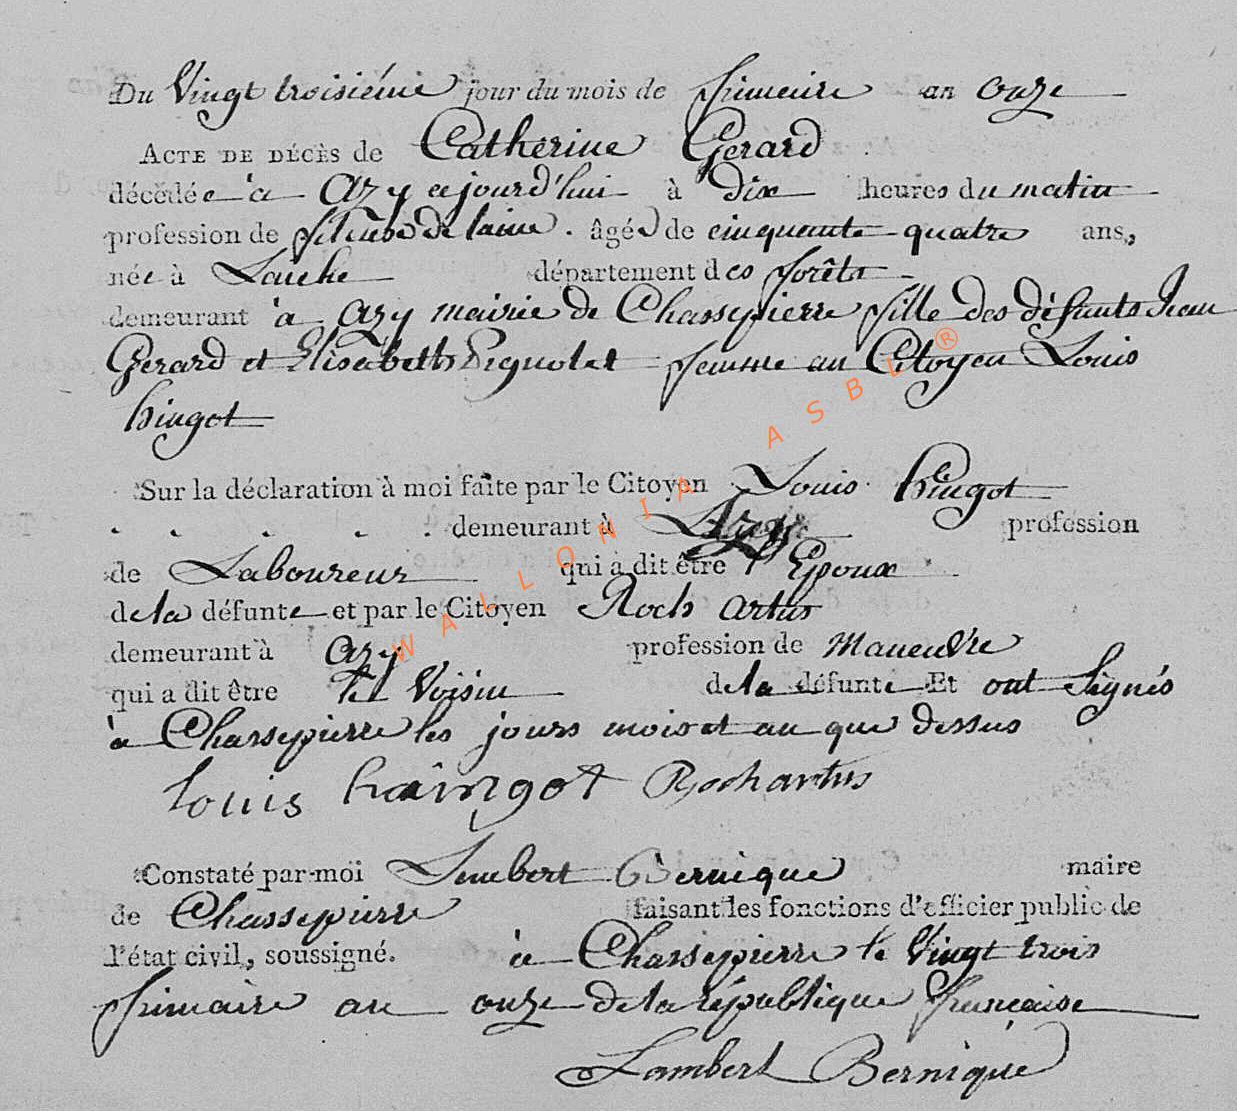 Du Vingt troisiéme jour du mois de frimaire an onze
ACTE DE DÉCÈS de Catherine Gerard
décédée à Azy ajourd'hui à dix heures du matin
profession de fileuse de laine. âgée de cinquante quatre ans,
née à Laiche département des forêts
demeurant à Azy mairie de Chassepierre fille des défunts Jean
Gerard et Elisabeth Pignolet femme au Citoyen Louis
hingot
Sur la déclaration à moi faite par le Citoyen Louis hingot
demeurant à Azy profession
de Laboureur qui a dit être l'Epoux
de la défunte et par le Citoyen Roch artus
demeurant à azy profession de maneuvre
qui a dit être le Voisin de la défunte Et ont Signés
à Chassepierre les jours mois et an que dessus
louis haingot Roch artus
Constaté par moi Lambert Bernique maire
de Chassepierre faisant les fonctions d'officier public de
l'état civil, soussigné. à Chassepierre le Vingt trois
frimaire an onze de la république française
Lambert Bernique
WALLONIA ASBL ®